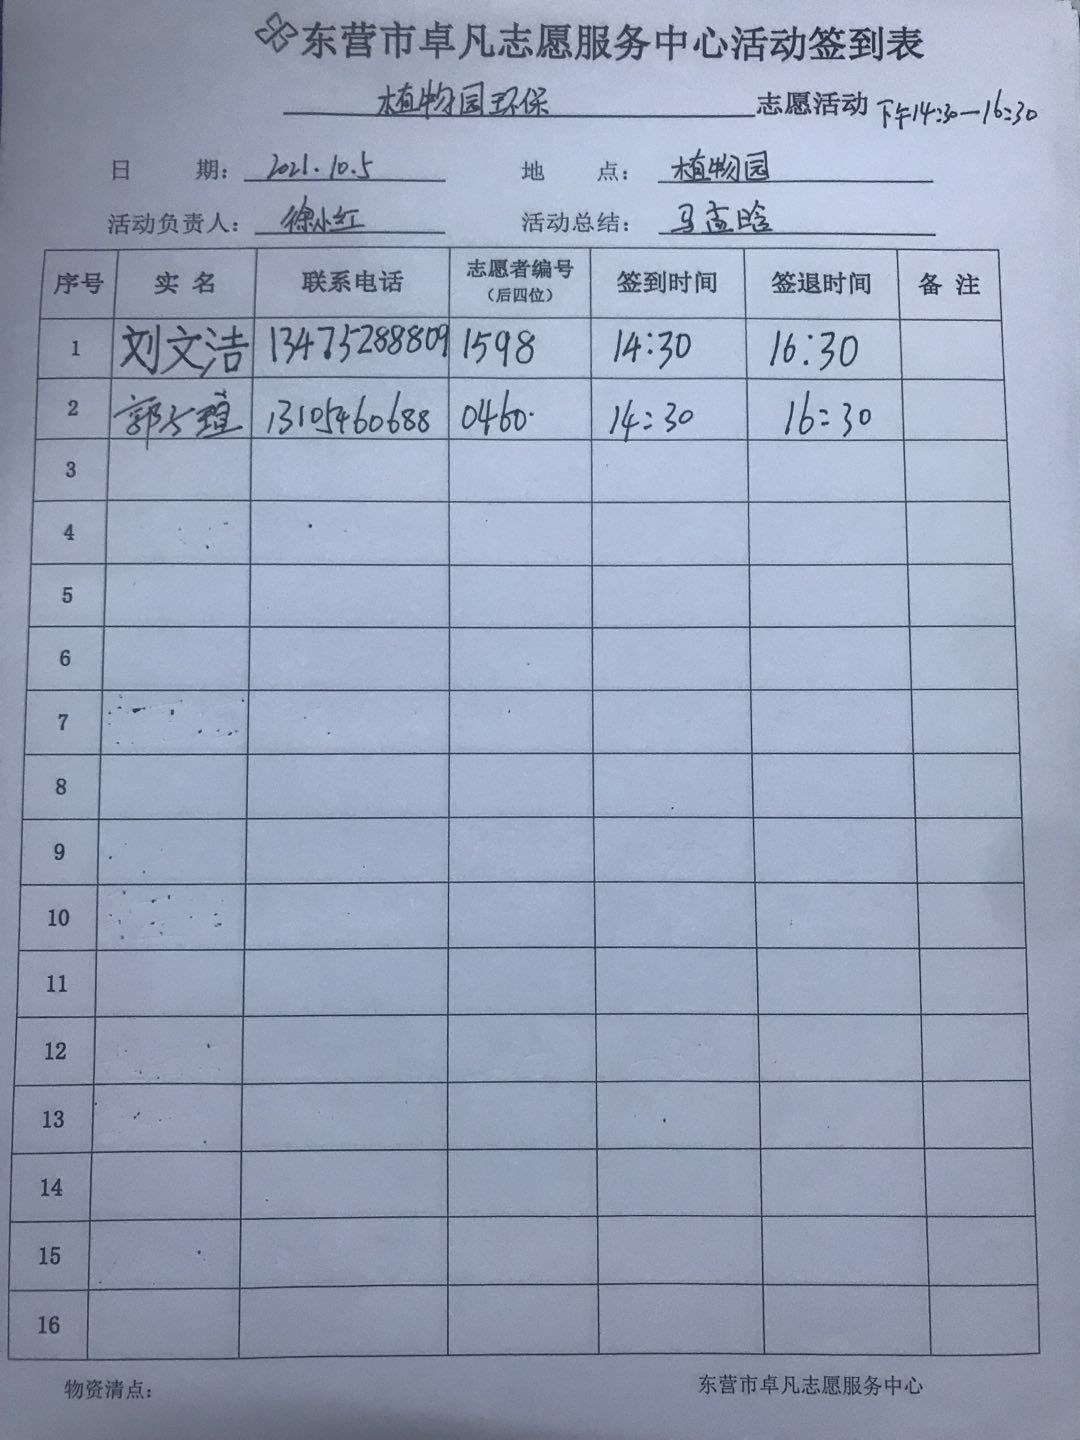 东营市卓凡志愿服务中心活动签到表
植物园环保 志愿活动 下午14:30—16:30
日 期: 2021.10.5 地 点: 植物园
活动负责人: 徐小红 活动总结: 马孟晗
序号 实 名 联系电话 志愿者编号(后四位) 签到时间 签退时间 备 注
1 刘文洁 13475288809 1598 14:30 16:30
2 郭 瑄 13105460688 0460. 14:30 16:30
3
4
5
6
7
8
9
10
11
12
13
14
15
16
物资清点: 东营市卓凡志愿服务中心